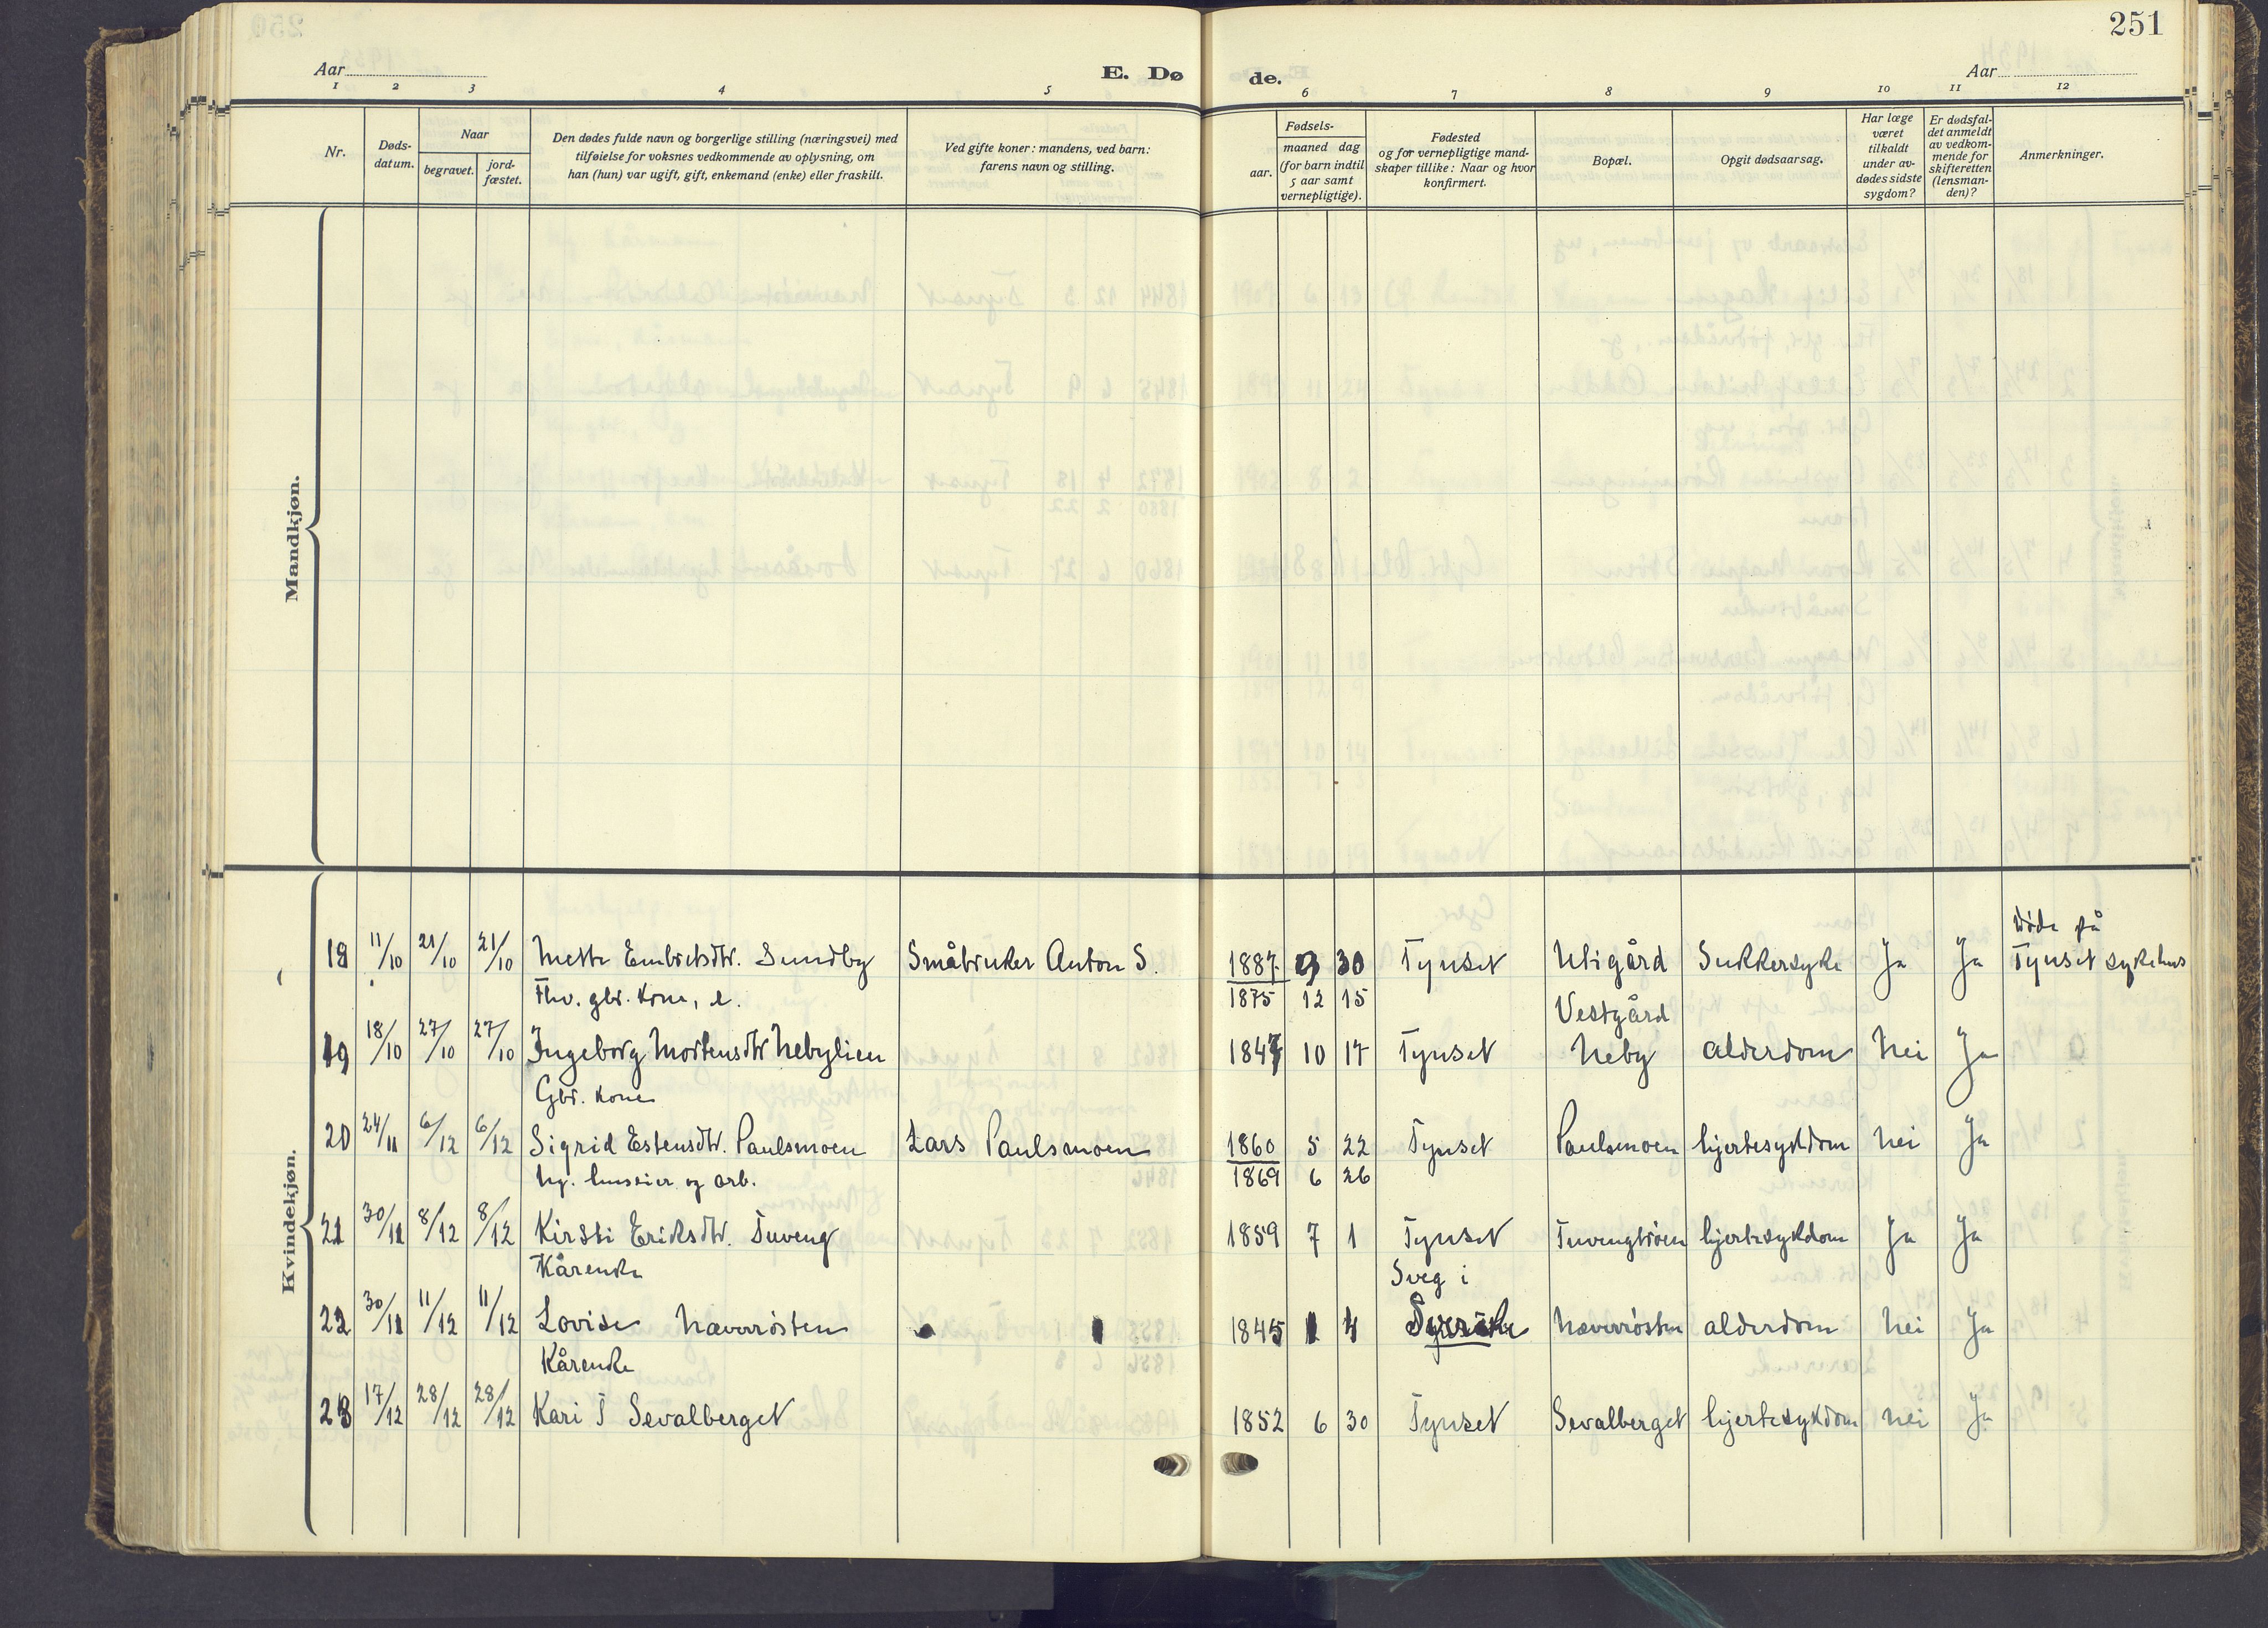 251
Aar
E. Dø
de.
Aar
1 2 3 4 5 6 7 8 9 10 11 12
Nr.
Døds-
datum.
Naar
begravet.
jord-
fæstet.
Den dødes fulde navn og borgerlige stilling (næringsvei) med
tilføielse for voksnes vedkommende av oplysning, om
han (hun) var ugift, gift, enkemand (enke) eller fraskilt.
Ved gifte koner: mandens, ved barn:
farens navn og stilling.
Fødsels-
aar.
maaned dag
(for barn indtil
5 aar samt
vernepligtige).
Fødested
og for vernepligtige mand-
skaper tillike: Naar og hvor
konfirmert.
Bopæl.
Opgit dødsaarsag.
Har læge
været
tilkaldt
under av-
dødes sidste
sygdom?
Er dødsfal-
det anmeldt
av vedkom-
mende for
skifteretten
(lensman-
den)?
Anmerkninger.
Mandkjøn.
Kvindekjøn.
Døde på
18 11/10 21/10 21/10 Mette Embretsdtr. Sundby Småbruker Anton S. 1887 9 30 Tynset Utigård Sukkersyke Ja Ja Tynset sykehus
Fhv. gbr. kone, e. 1875 12 15 Vestgård
19 18/10 27/10 27/10 Ingeborg Mortensdtr Nebylien 1847 10 17 Tynset Neby alderdom Nei Ja
Gbr. kone
20 24/11 6/12 6/12 Sigrid Estensdtr. Paulsmoen Lars Paulsmoen 1860 5 22 Tynset Paulsmoen hjertesykdom Nei Ja
hy. huseier og arb. 1869 6 26
21 30/11 8/12 8/12 Kirsti Eriksdtr. Tuveng 1859 7 1 Tynset Tuvengtrøen hjertesykdom Ja Ja
Kårenke Sveg i
22 30/11 11/12 11/12 Lovise Næverrøsten 1845 1 4 Sverike Næverrøsten alderdom Nei Ja
Kårenke
23 17/12 28/12 28/12 Kari T Sevalberget 1852 6 30 Tynset Sevalberget hjertesykdom Nei Ja